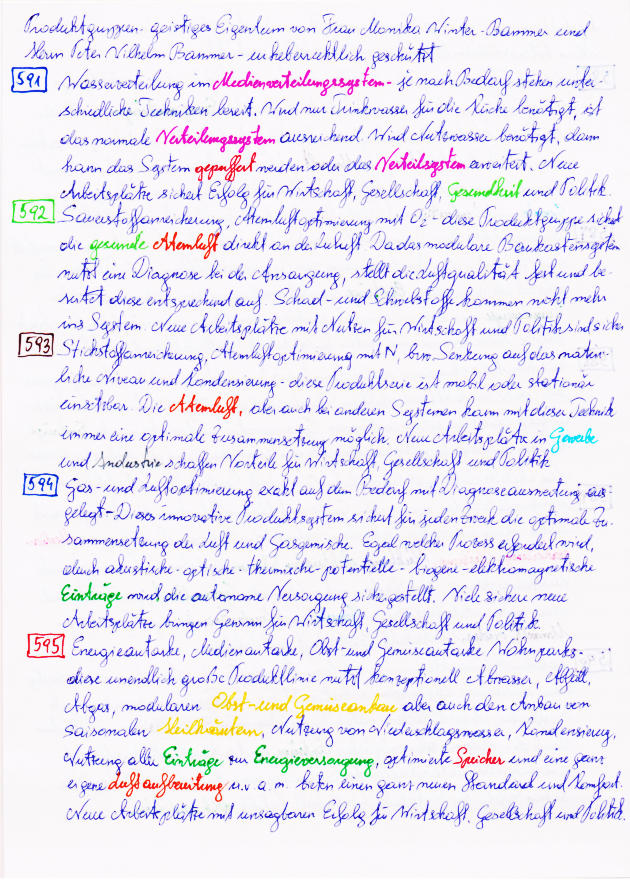 Produktgruppen- geistiges Eigentum von Frau Monika Winter-Bammer und
Herrn Peter Wilhelm Bammer - urheberrechtlich geschützt
591 Wasserverteilung im Medienverteilungssystem - je nach Bedarf stehen unter-
schiedliche Techniken bereit. Wird nur Trinkwasser für die Küche benötigt, ist
das normale Verteilungssystem ausreichend. Wird Nutzwasser benötigt, dann
kann das System gepuffert werden oder das Verteilsystem erweitert. Neue
Arbeitsplätze sichert Erfolg für Wirtschaft, Gesellschaft, Gesundheit und Politik.
592 Sauerstoffanreicherung, Atemluftoptimierung mit O2 - diese Produktgruppe sichert
die gesunde Atemluft direkt an der Zuluft. Da das modulare Baukastensystem
nutzt eine Diagnose bei der Ansaugung, stellt die Luftqualität fest und be-
reitet diese entsprechend auf. Schad- und Schwebstoffe kommen nicht mehr
ins System. Neue Arbeitsplätze mit Nutzen für Wirtschaft und Politik sind sicher
593 Stickstoffanreicherung, Atemluftoptimierung mit N, bzw. Senkung auf das natür-
liche Niveau und Kondensierung - diese Produktserie ist mobil oder stationär
einsetzbar. Die Atemluft, aber auch bei anderen Systemen kann mit dieser Technik
immer eine optimale Zusammensetzung möglich. Neue Arbeitsplätze in Gewerbe
und Industrie schaffen Vorteile für Wirtschaft, Gesellschaft und Politik
594 Gas- und Luftoptimierung exakt auf den Bedarf mit Diagnoseauswertung aus-
gelegt - Dieses innovative Produktsystem sichert für jeden Zweck die optimale Zu-
sammensetzung der Luft und Gasgemische. Egal welcher Prozess erforderlich wird,
durch akustische- optische- thermische- potentielle- biogene- elektromagnetische
Einträge wird die autonome Versorgung sichergestellt. Viele sichere neue
Arbeitsplätze bringen Gewinn für Wirtschaft, Gesellschaft und Politik.
595 Energieautarke, Medienautarke, Obst- und Gemüseautarke Wohnparks-
diese unendlich große Produktlinie nutzt konzeptionell Abwasser, Abfall,
Abgas, modularen Obst- und Gemüseanbau aber auch den Anbau von
saisonalen Heilkräutern, Nutzung von Niederschlagswasser, Kondensierung,
Nutzung aller Einträge zur Energieversorgung, optimierte Speicher und eine ganz
eigene Luftaufbereitung u.v.a.m. bieten einen ganz neuen Standard und Komfort.
Neue Arbeitsplätze mit unsagbaren Erfolg für Wirtschaft, Gesellschaft und Politik.